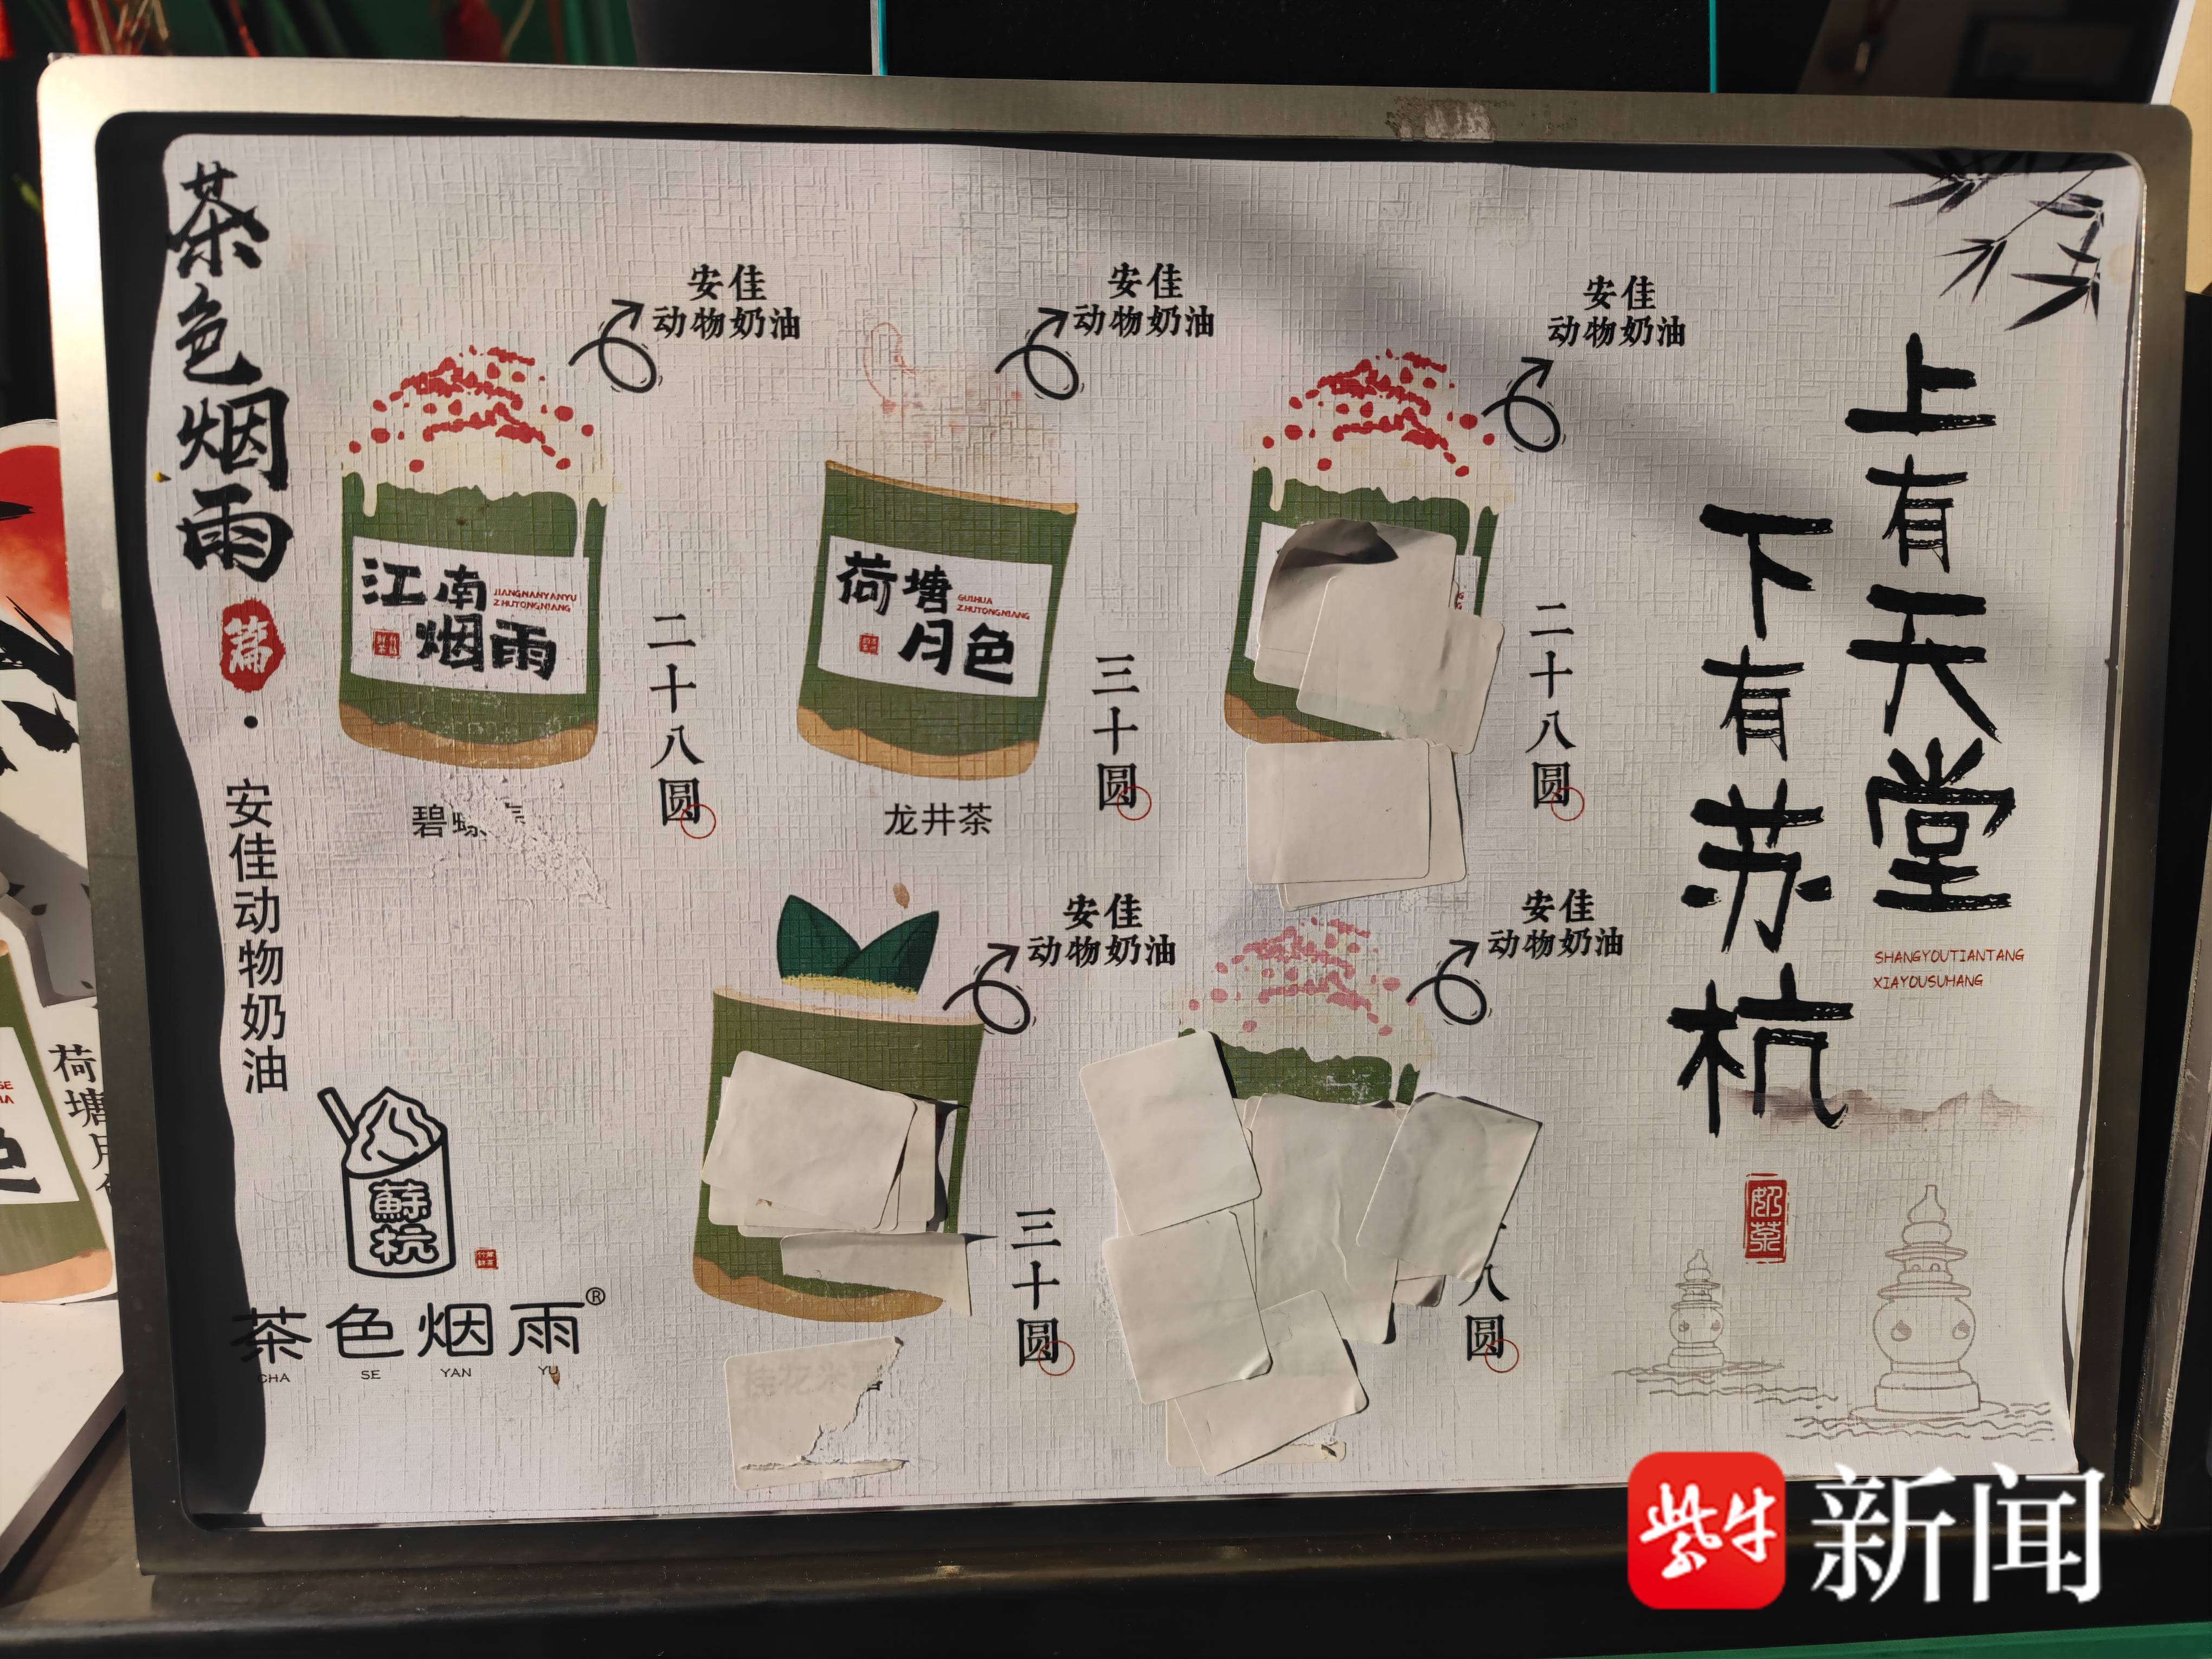 茶色烟雨
篇
·
安佳动物奶油
安佳
动物奶油
江南
烟雨
JIANGNANYANYU
ZHUTONGNIANG
二十八圆
碧螺
安佳
动物奶油
荷塘
月色
GUIHUA
ZHUTONGNIANG
三十圆
龙井茶
安佳
动物奶油
二十八圆
安佳
动物奶油
三十圆
安佳
动物奶油
八圆
上有天堂
下有苏杭
SHANGYOUTIANTANG
XIAYOUSUHANG
奶茶
蘇
杭
茶色烟雨®
CHA SE YAN YU
荷塘月
紫牛新闻